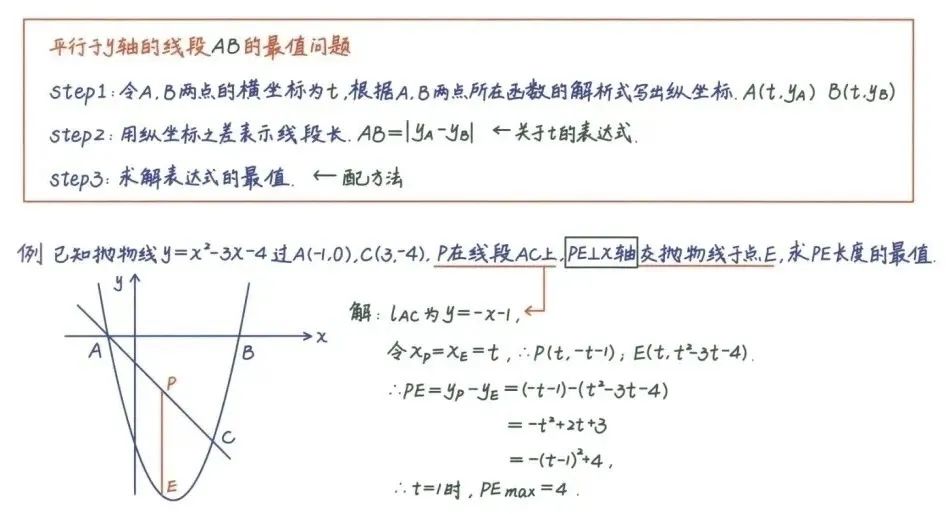 平行于y轴的线段AB的最值问题
step1:令A,B两点的横坐标为t,根据A,B两点所在函数的解析式写出纵坐标.A(t,yA) B(t,yB)
step2:用纵坐标之差表示线段长.AB=|yA-yB| ←关于t的表达式.
step3:求解表达式的最值. ←配方法
例 已知抛物线y=x²-3x-4过A(-1,0),C(3,-4),P在线段AC上,PE⊥x轴交抛物线于点E,求PE长度的最值.
y
x
A
B
P
C
E
解:lAC为y=-x-1,
令xP=xE=t,∴P(t,-t-1);E(t,t²-3t-4).
∴PE=yP-yE=(-t-1)-(t²-3t-4)
=-t²+2t+3
=-(t-1)²+4,
∴t=1时,PEmax=4.